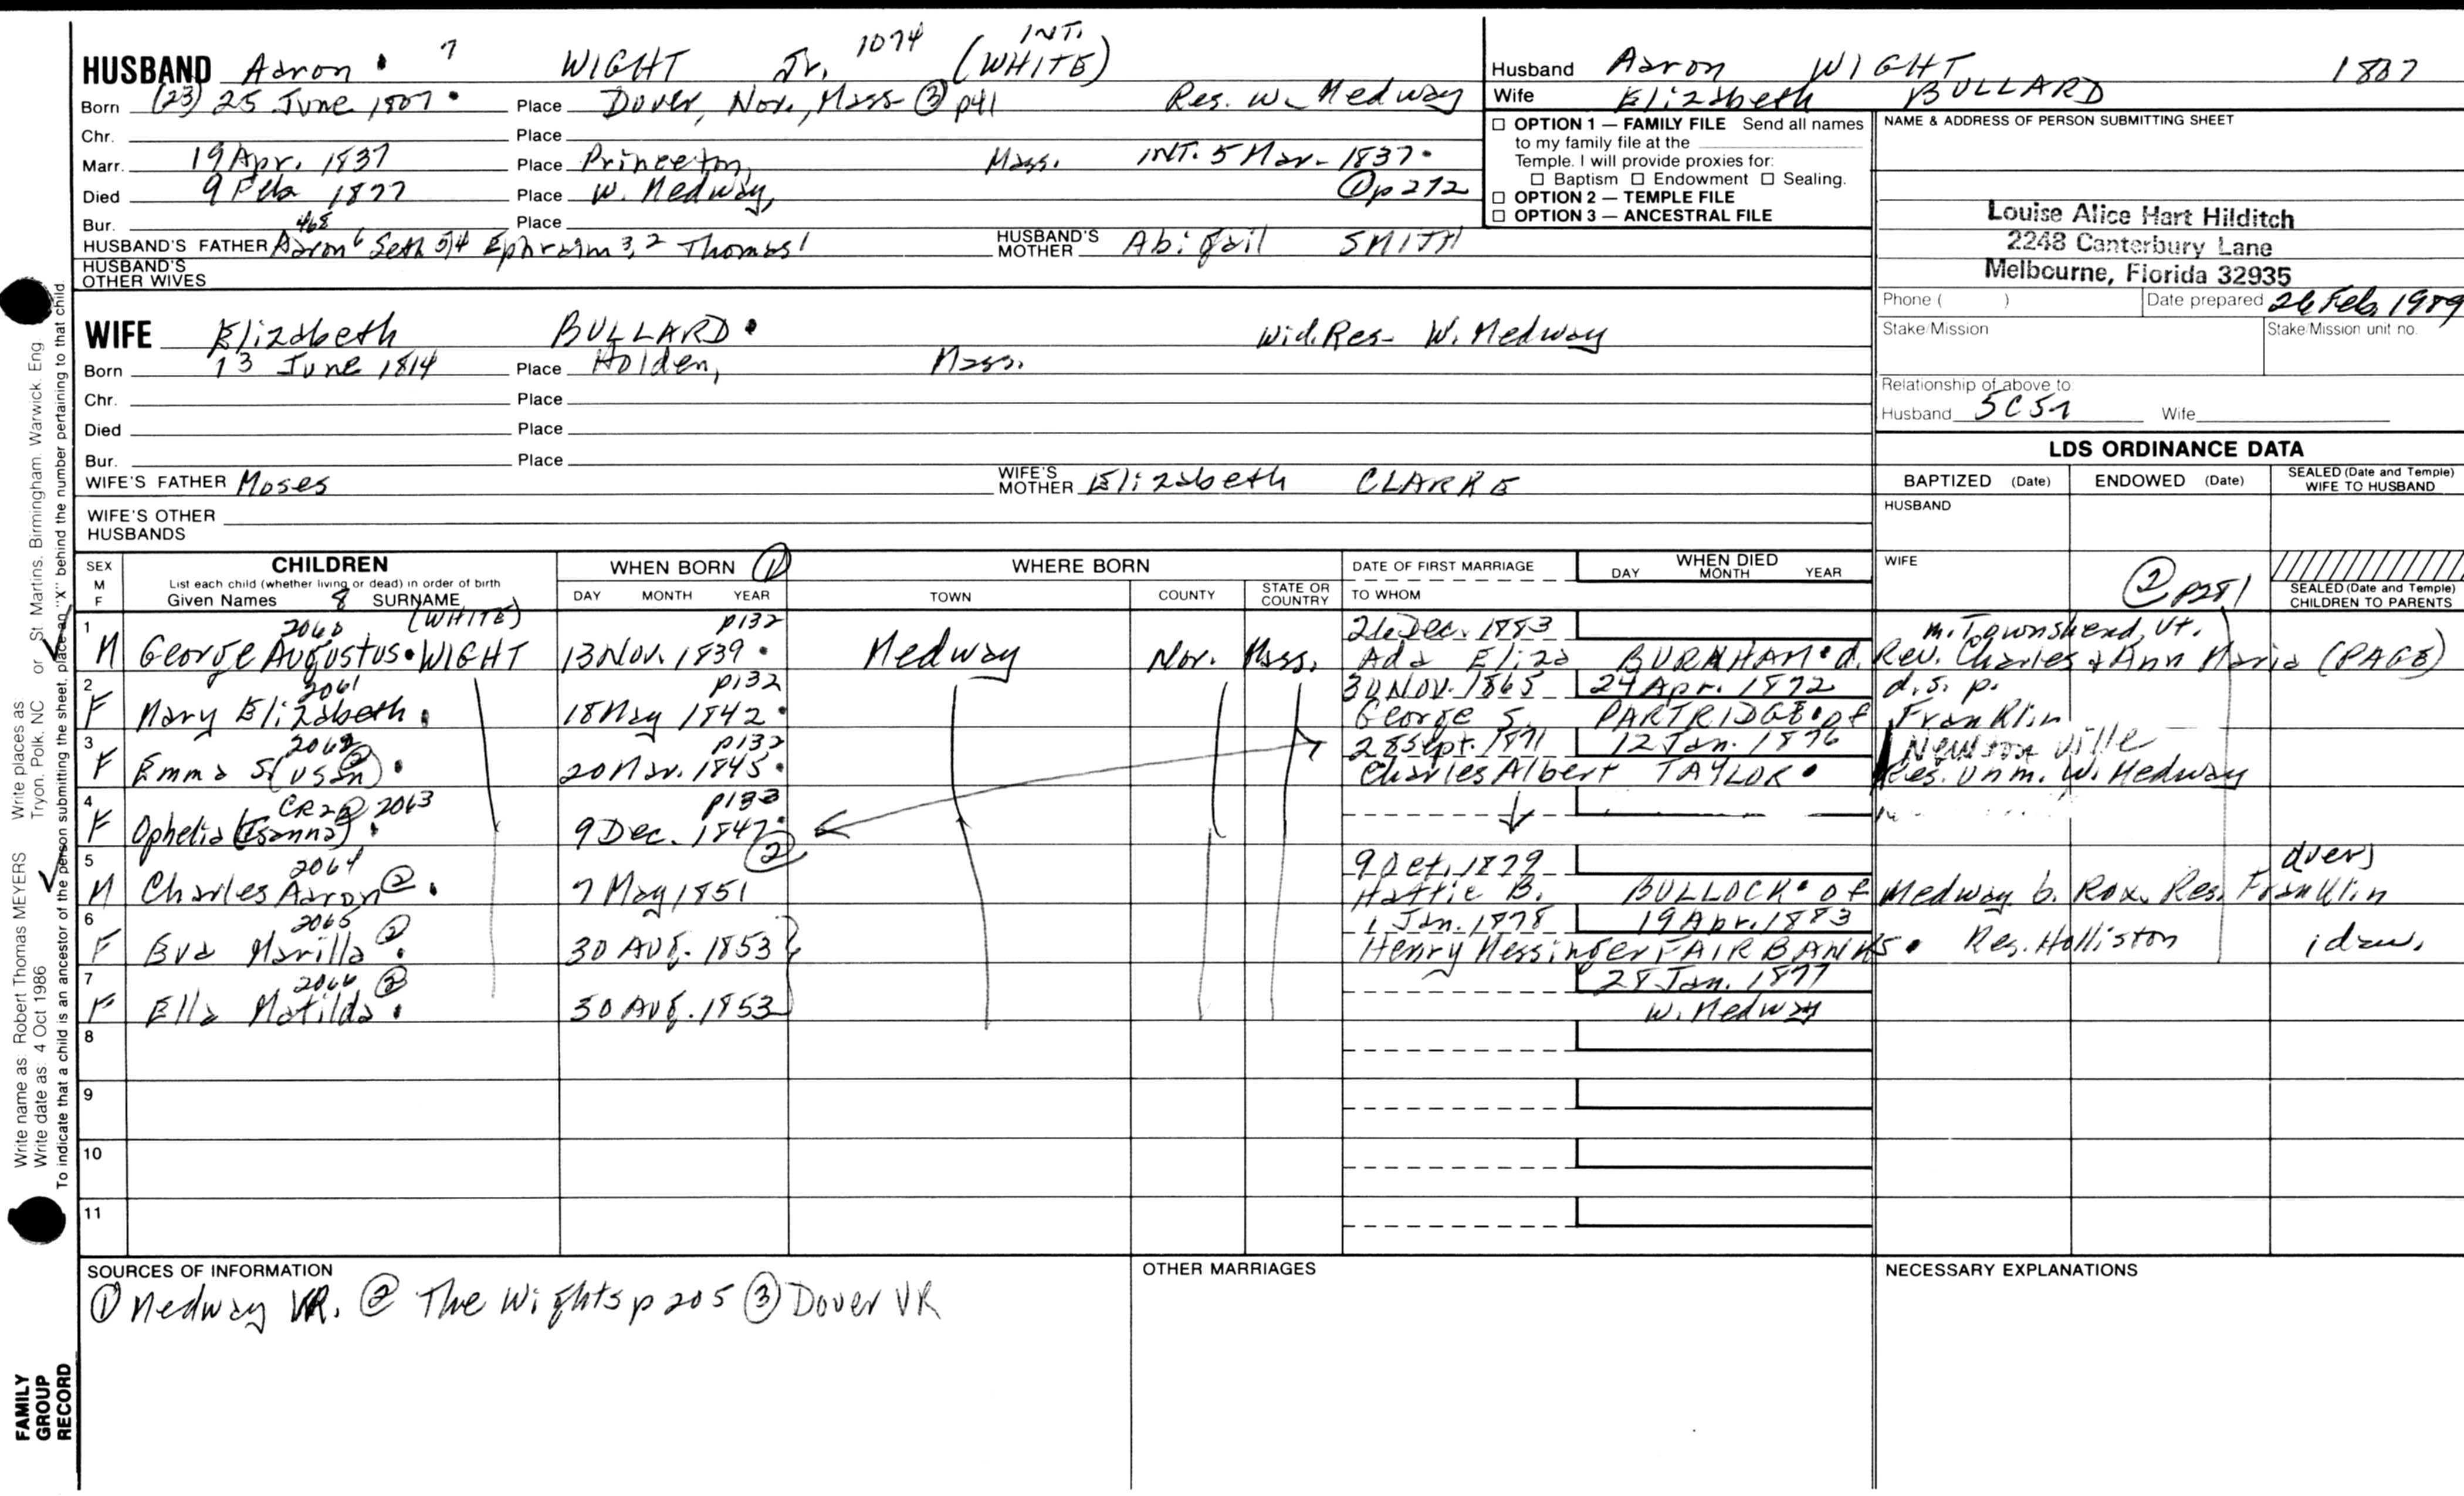 HUSBAND Aaron 7 WIGHT Jr. 1074 (WHITE) INT.
Born (23) 25 June 1807 Place Dover, Nor., Mass ③ p41 Res. W. Medway
Chr. Place
Marr. 19 Apr. 1837 Place Princeton, Mass. INT. 5 Mar. 1837
Died 9 Feb 1877 Place W. Medway, ① p272
Bur. Place
468
HUSBAND'S FATHER Aaron 6 Seth 5,4 Ephraim 3,2 Thomas 1 HUSBAND'S MOTHER Abigail SMITH
HUSBAND'S OTHER WIVES
WIFE Elizabeth BULLARD Wid. Res- W. Medway
Born 13 June 1814 Place Holden, Mass.
Chr. Place
Died Place
Bur. Place
WIFE'S FATHER Moses WIFE'S MOTHER Elizabeth CLARKE
WIFE'S OTHER HUSBANDS
Husband Aaron WIGHT 1807
Wife Elizabeth BULLARD
☐ OPTION 1 — FAMILY FILE Send all names
to my family file at the
Temple. I will provide proxies for:
☐ Baptism ☐ Endowment ☐ Sealing.
☐ OPTION 2 — TEMPLE FILE
☐ OPTION 3 — ANCESTRAL FILE
NAME & ADDRESS OF PERSON SUBMITTING SHEET
Louise Alice Hart Hilditch
2248 Canterbury Lane
Melbourne, Florida 32935
Phone ( ) Date prepared 26 Feb 1989
Stake/Mission Stake/Mission unit no.
Relationship of above to
Husband 5C5R Wife
LDS ORDINANCE DATA
BAPTIZED (Date) ENDOWED (Date) SEALED (Date and Temple) WIFE TO HUSBAND
HUSBAND
WIFE ② p281 SEALED (Date and Temple) CHILDREN TO PARENTS
SEX M F CHILDREN WHEN BORN ① WHERE BORN DATE OF FIRST MARRIAGE WHEN DIED
List each child (whether living or dead) in order of birth
Given Names 8 SURNAME DAY MONTH YEAR TOWN COUNTY STATE OR COUNTRY TO WHOM DAY MONTH YEAR
1 2060 (WHITE) p132 26 Dec. 1883 m. Townshend, Vt.
M George Augustus WIGHT 13 Nov. 1839 Medway Nor. Mass. Ada Eliza BURNHAM d. Rev. Charles & Ann Maria (PAGE)
2 2061 p132 30 Nov. 1865 24 Apr. 1872 d.s.p.
F Mary Elizabeth 18 May 1842 George S. PARTRIDGE of Franklin
3 2062 ② p132 28 Sept. 1871 12 Jan. 1876 Newtonville
F Emma S(usan) 20 Mar. 1845 Charles Albert TAYLOR Res. unm. W. Medway
4 CR2 ② 2063 p133
F Ophelia (Isanna) 9 Dec. 1847 ②
5 2064 9 Oct. 1879
M Charles Aaron ② 7 May 1851 Hattie B. BULLOCK of Medway b. Rox. Res. Franklin
6 2065 ② 1 Jan. 1878 19 Apr. 1883
F Eva Marilla 30 Aug. 1853 Henry Messinger FAIRBANKS Res. Holliston
7 2066 ② 28 Jan. 1877
F Ella Matilda 30 Aug. 1853 W. Medway
8
9
10
11
SOURCES OF INFORMATION
① Medway VR. ② The Wights p 205 ③ Dover VR
OTHER MARRIAGES
NECESSARY EXPLANATIONS
Write name as Robert Thomas MEYERS Write places as: Tryon, Polk, NC or St. Martins, Birmingham, Warwick, Eng
Write date as: 4 Oct 1986
To indicate that a child is an ancestor of the person submitting the sheet, place an "X" behind the number pertaining to that child.
FAMILY
GROUP
RECORD